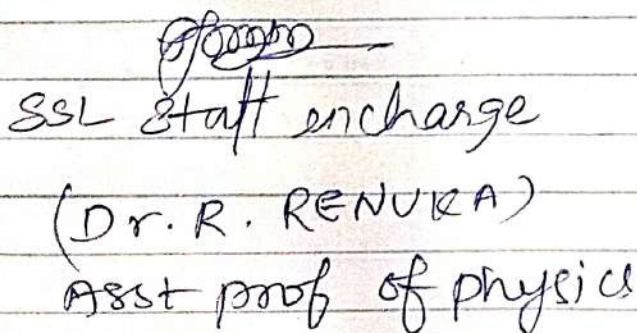 SSL Staff encharge
(Dr. R. RENUKA)
Asst prof of physics